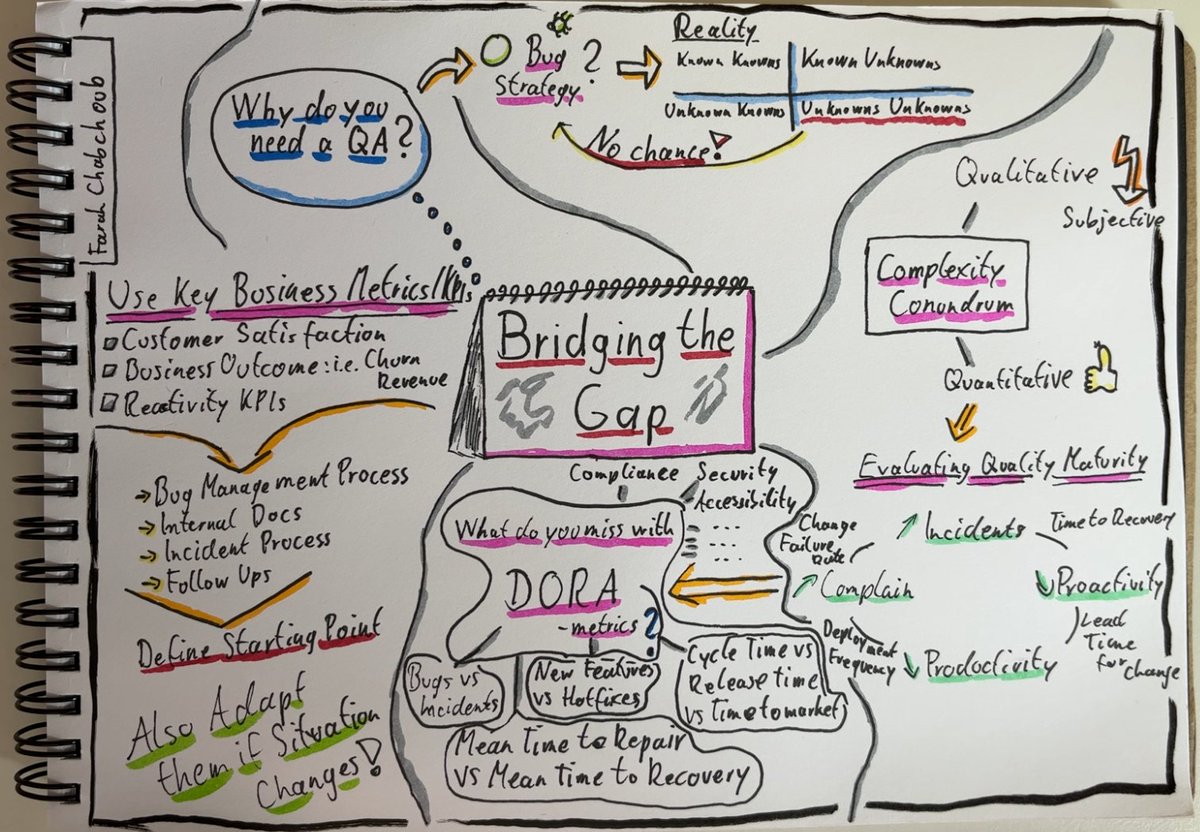 Farah Chabchoub
Why do you
need a QA?
Bug ?
Strategy
Reality
Known Knowns
Known Unknowns
Unknown Knowns
Unknowns Unknowns
No chance!
Bridging the
Gap
Qualitative
Subjective
Complexity
Conundrum
Quantitative
Evaluating Quality Maturity
Incidents
Time to Recovery
Proactivity
Lead
Time
for Change
Productivity
Deployment
Frequency
Complain
Change
Failure
Rate
Compliance
Security
Accessibility
What do you miss with
DORA
- metrics ?
Bugs vs
Incidents
New Features
vs Hotfixes
Cycle Time vs
Release time
vs Time to market
Mean Time to Repair
vs Mean Time to Recovery
Use Key Business Metrics/KPIs
Customer Satisfaction
Business Outcome: i.e. Churn
Revenue
Reactivity KPIs
→ Bug Management Process
→ Internal Docs
→ Incident Process
→ Follow Ups
Define Starting Point
Also Adapt
them if Situation
Changes!